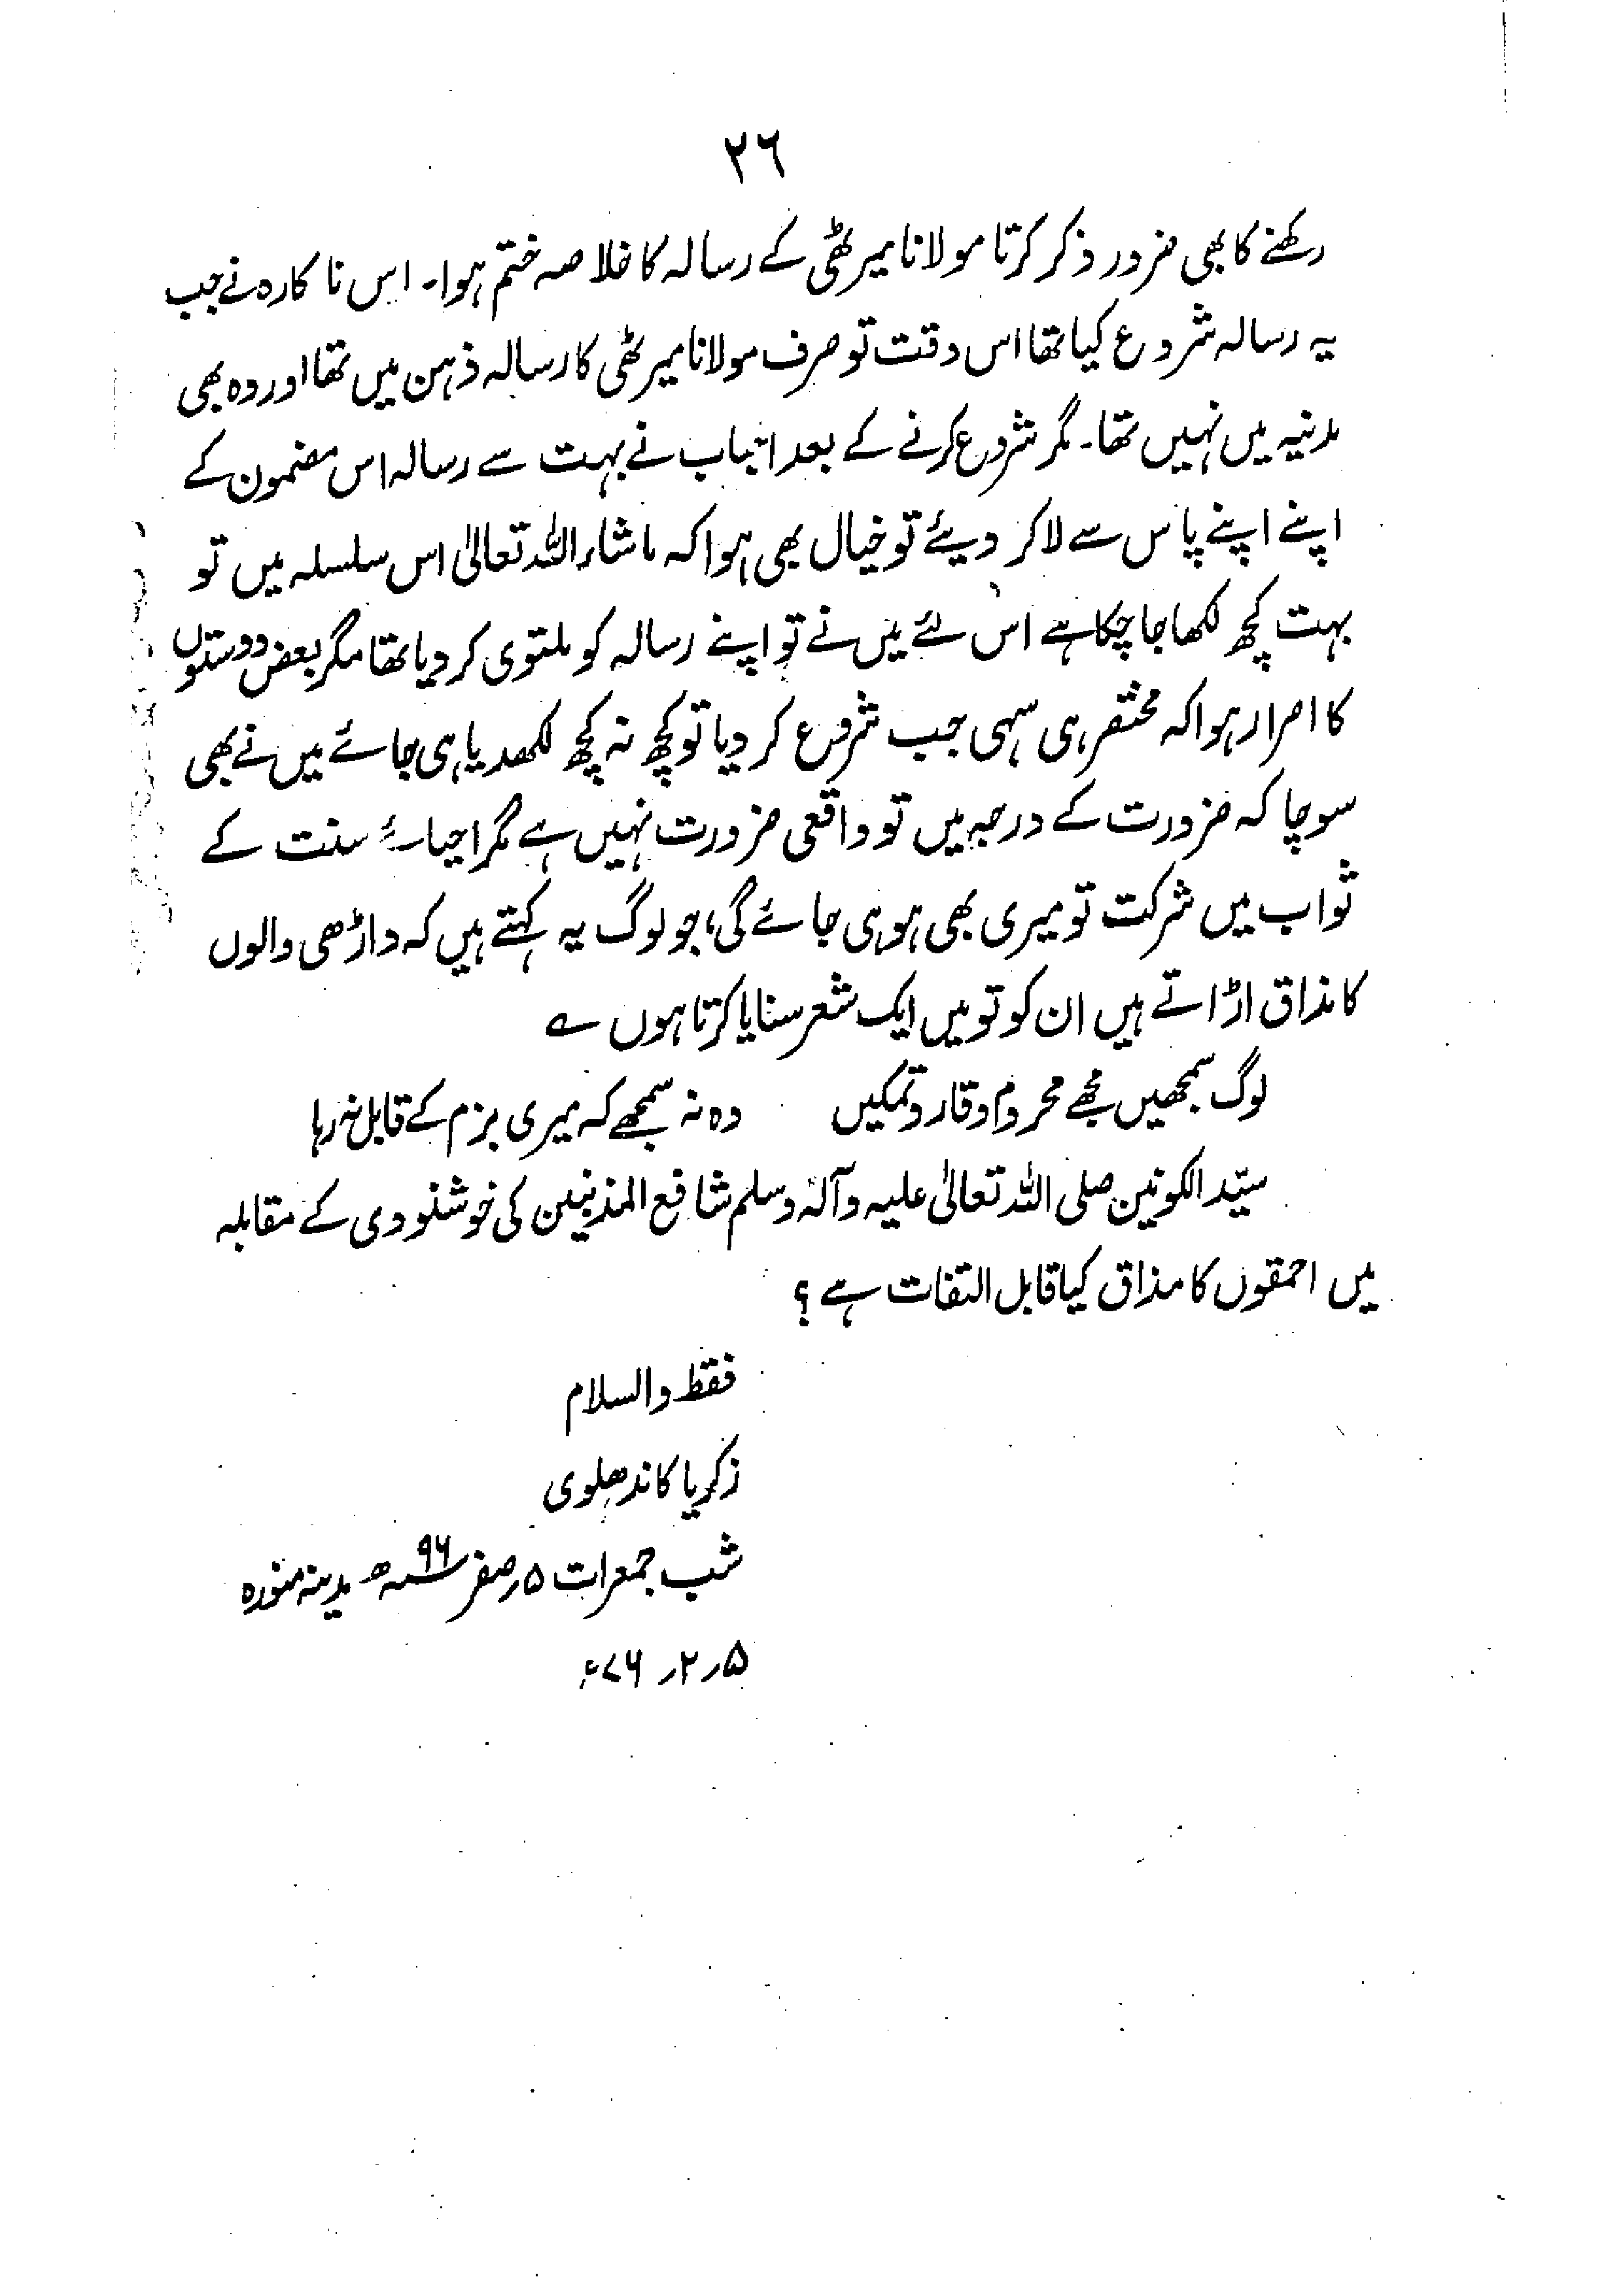 ۲۶
رکھنے کا بھی ضرور ذکر کرتا مولانا میرٹھی کے رسالہ کا خلاصہ ختم ہوا۔ اس ناکارہ نے جب
یہ رسالہ شروع کیا تھا اس وقت تو صرف مولانا میرٹھی کا رسالہ ذہن میں تھا اور وہ بھی
مدینہ میں نہیں تھا۔ مگر شروع کرنے کے بعد احباب نے بہت سے رسالہ اس مضمون کے
اپنے اپنے پاس سے لاکر دیئے تو خیال بھی ہوا کہ ماشاء اللہ تعالیٰ اس سلسلہ میں تو
بہت کچھ لکھا جا چکا ہے اس لئے میں نے تو اپنے رسالہ کو ملتوی کر دیا تھا مگر بعض دوستوں
کا اصرار ہوا کہ مختصر ہی سہی جب شروع کر دیا تو کچھ نہ کچھ لکھدیا ہی جائے میں نے بھی
سوچا کہ ضرورت کے درجہ میں تو واقعی ضرورت نہیں ہے مگر احیاءِ سنت کے
ثواب میں شرکت تو میری بھی ہو ہی جائے گی، جو لوگ یہ کہتے ہیں کہ داڑھی والوں
کا مذاق اڑاتے ہیں ان کو تو میں ایک شعر سنایا کرتا ہوں ؎
لوگ سمجھیں مجھے محروم وقار و تمکیں وہ نہ سمجھے کہ میری بزم کے قابل نہ رہا
سیّد الکونین صلی اللہ تعالیٰ علیہ وآلہٖ وسلم شافع المذنبین کی خوشنودی کے مقابلہ
میں احمقوں کا مذاق کیا قابل التفات ہے ؟
فقط والسلام
زکریا کاندھلوی
شب جمعرات ۵؍صفر ۹۶ھ مدینہ منورہ
۵؍۲؍۷۶ء